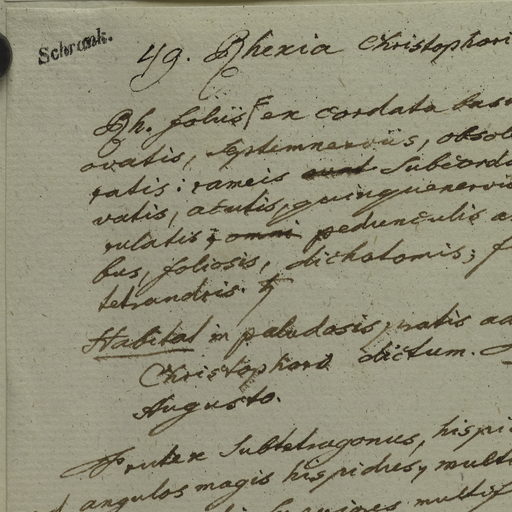 Schrank.
49. Rhexia Christophori
Rh. foliis ex cordata basi
ovatis, septimnerviis, obsol
ratis: rameis subcorda
vatis, acutis, quinquenervii
rulatis; omni pedunculis a
bus, foliosis, dichotomis; f
tetrandris. ♄
Habitat in paludosis pratis ad
Christophori dictum.
Augusto.
Frutex subtetragonus, hispi
angulos magis hispidus, mult
multif